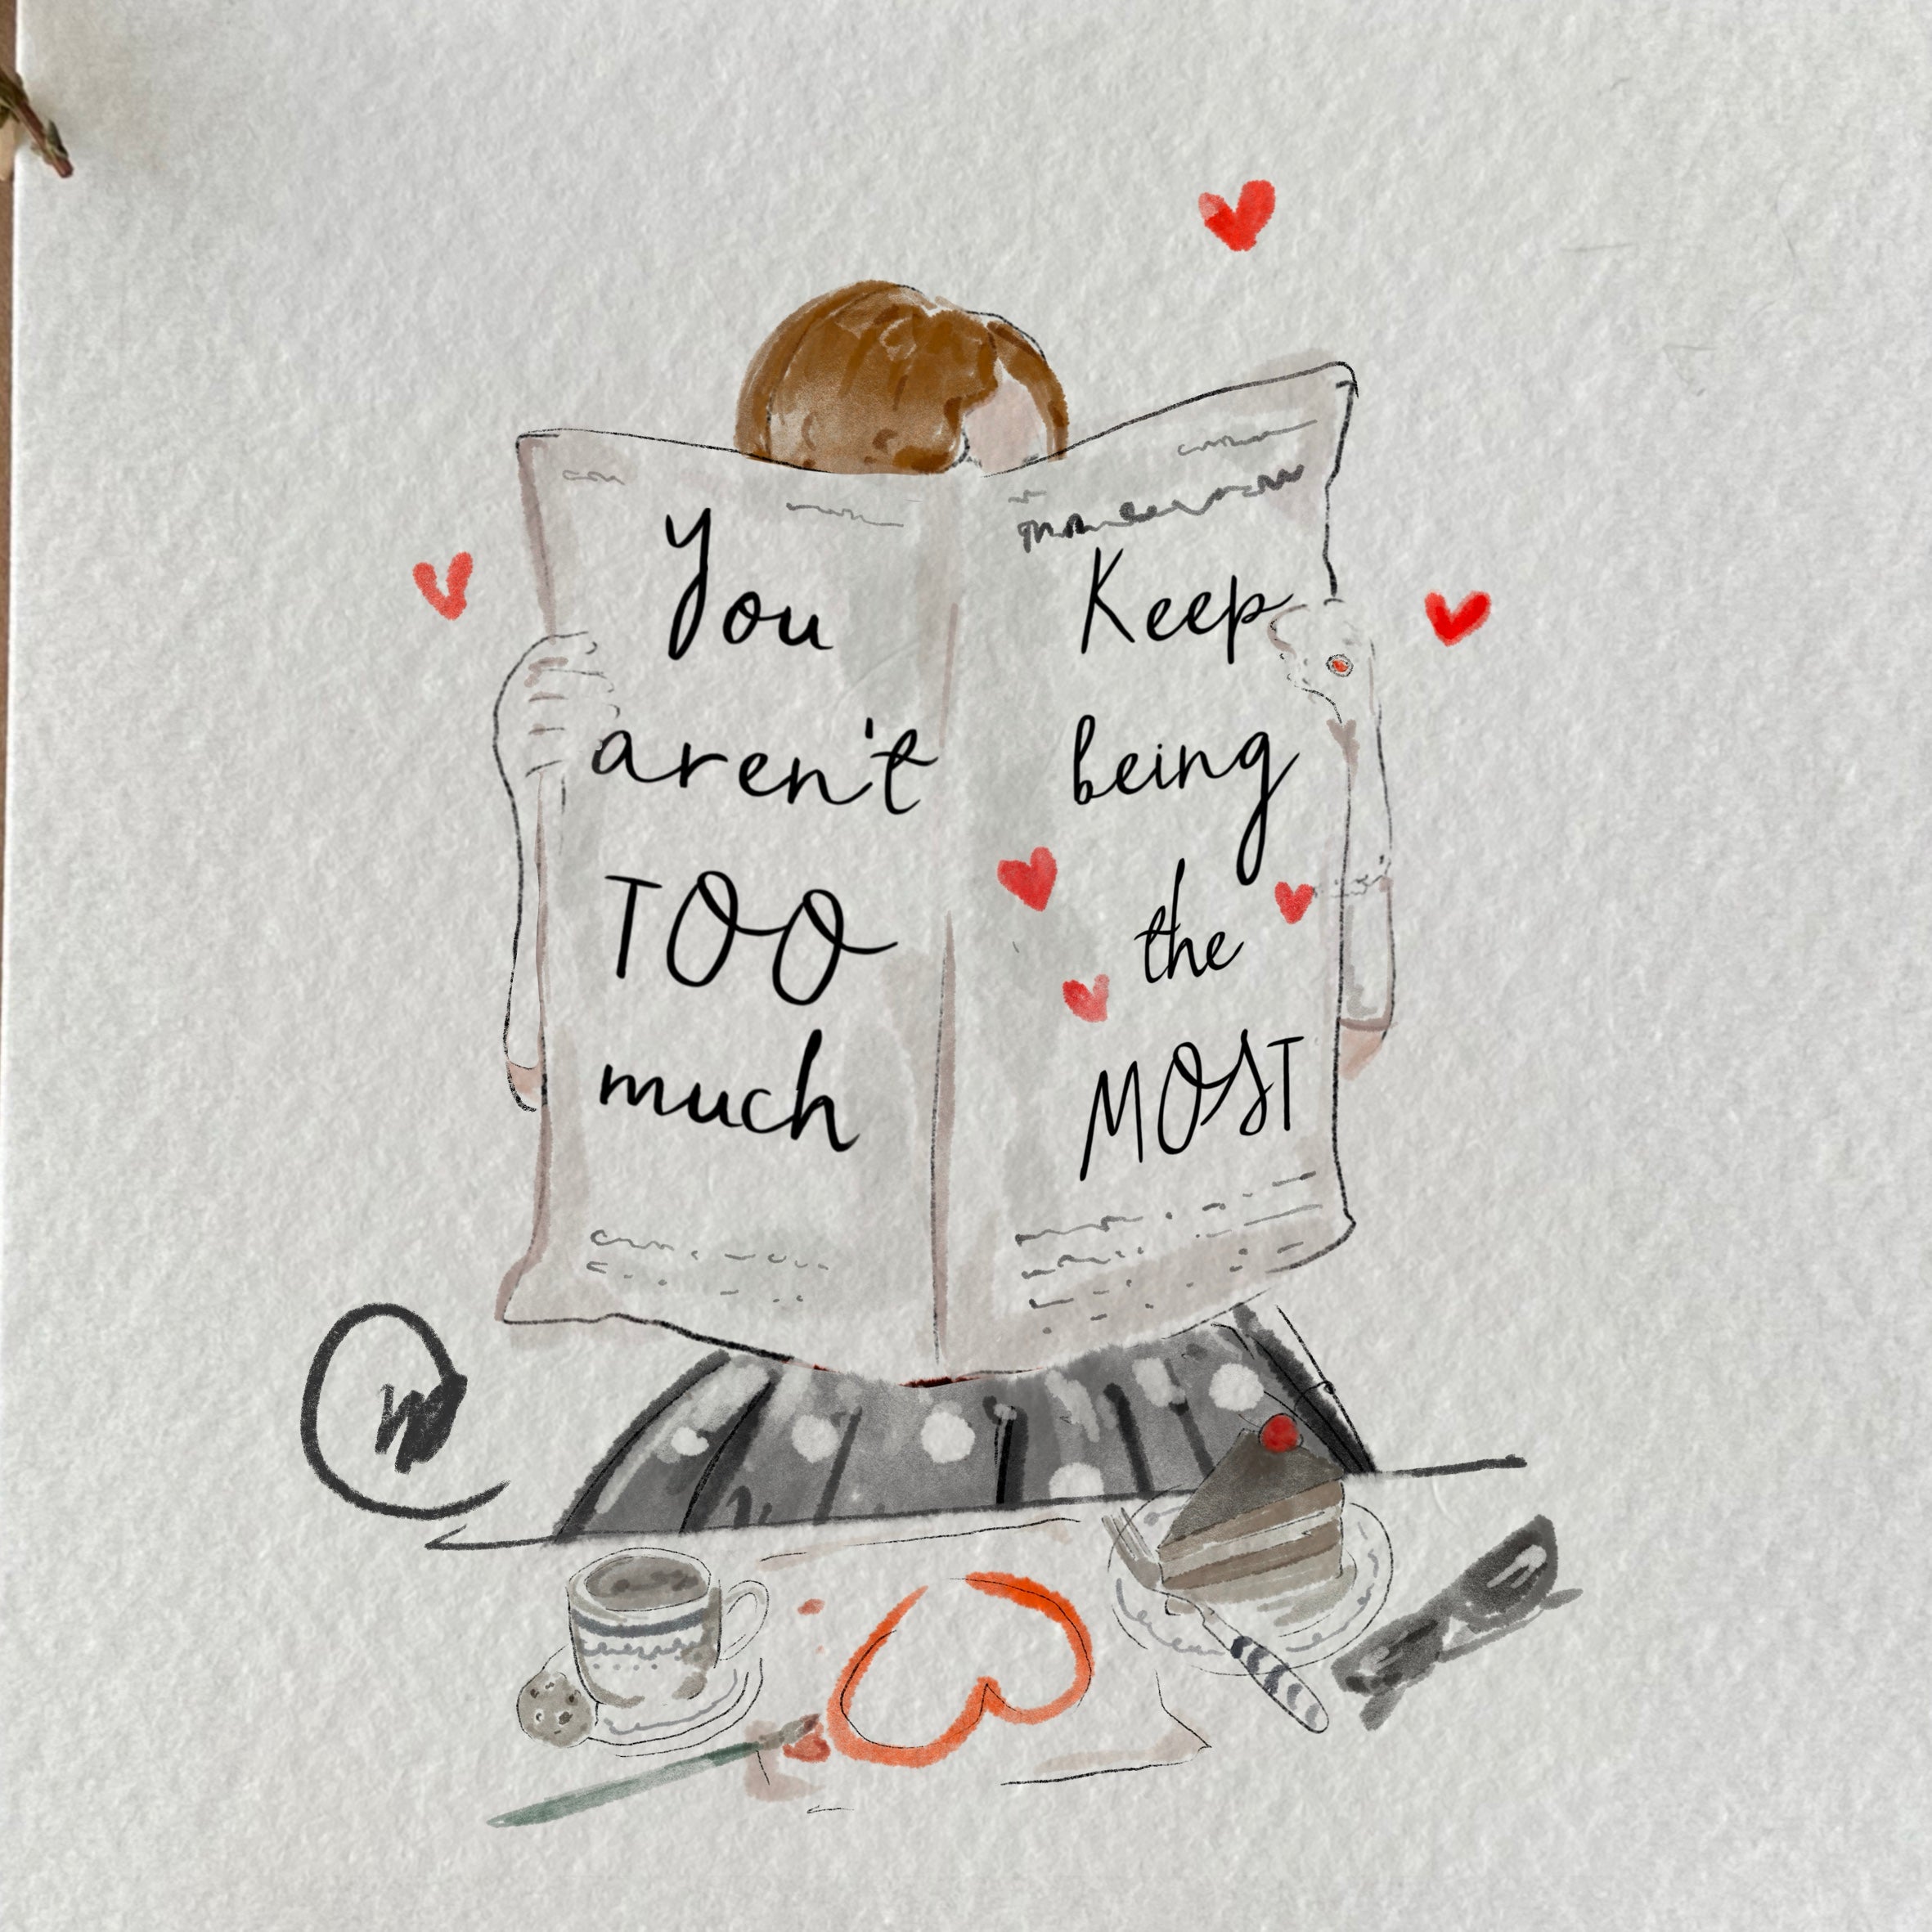 You
aren't
TOO
much
Keep
being
the
MOST